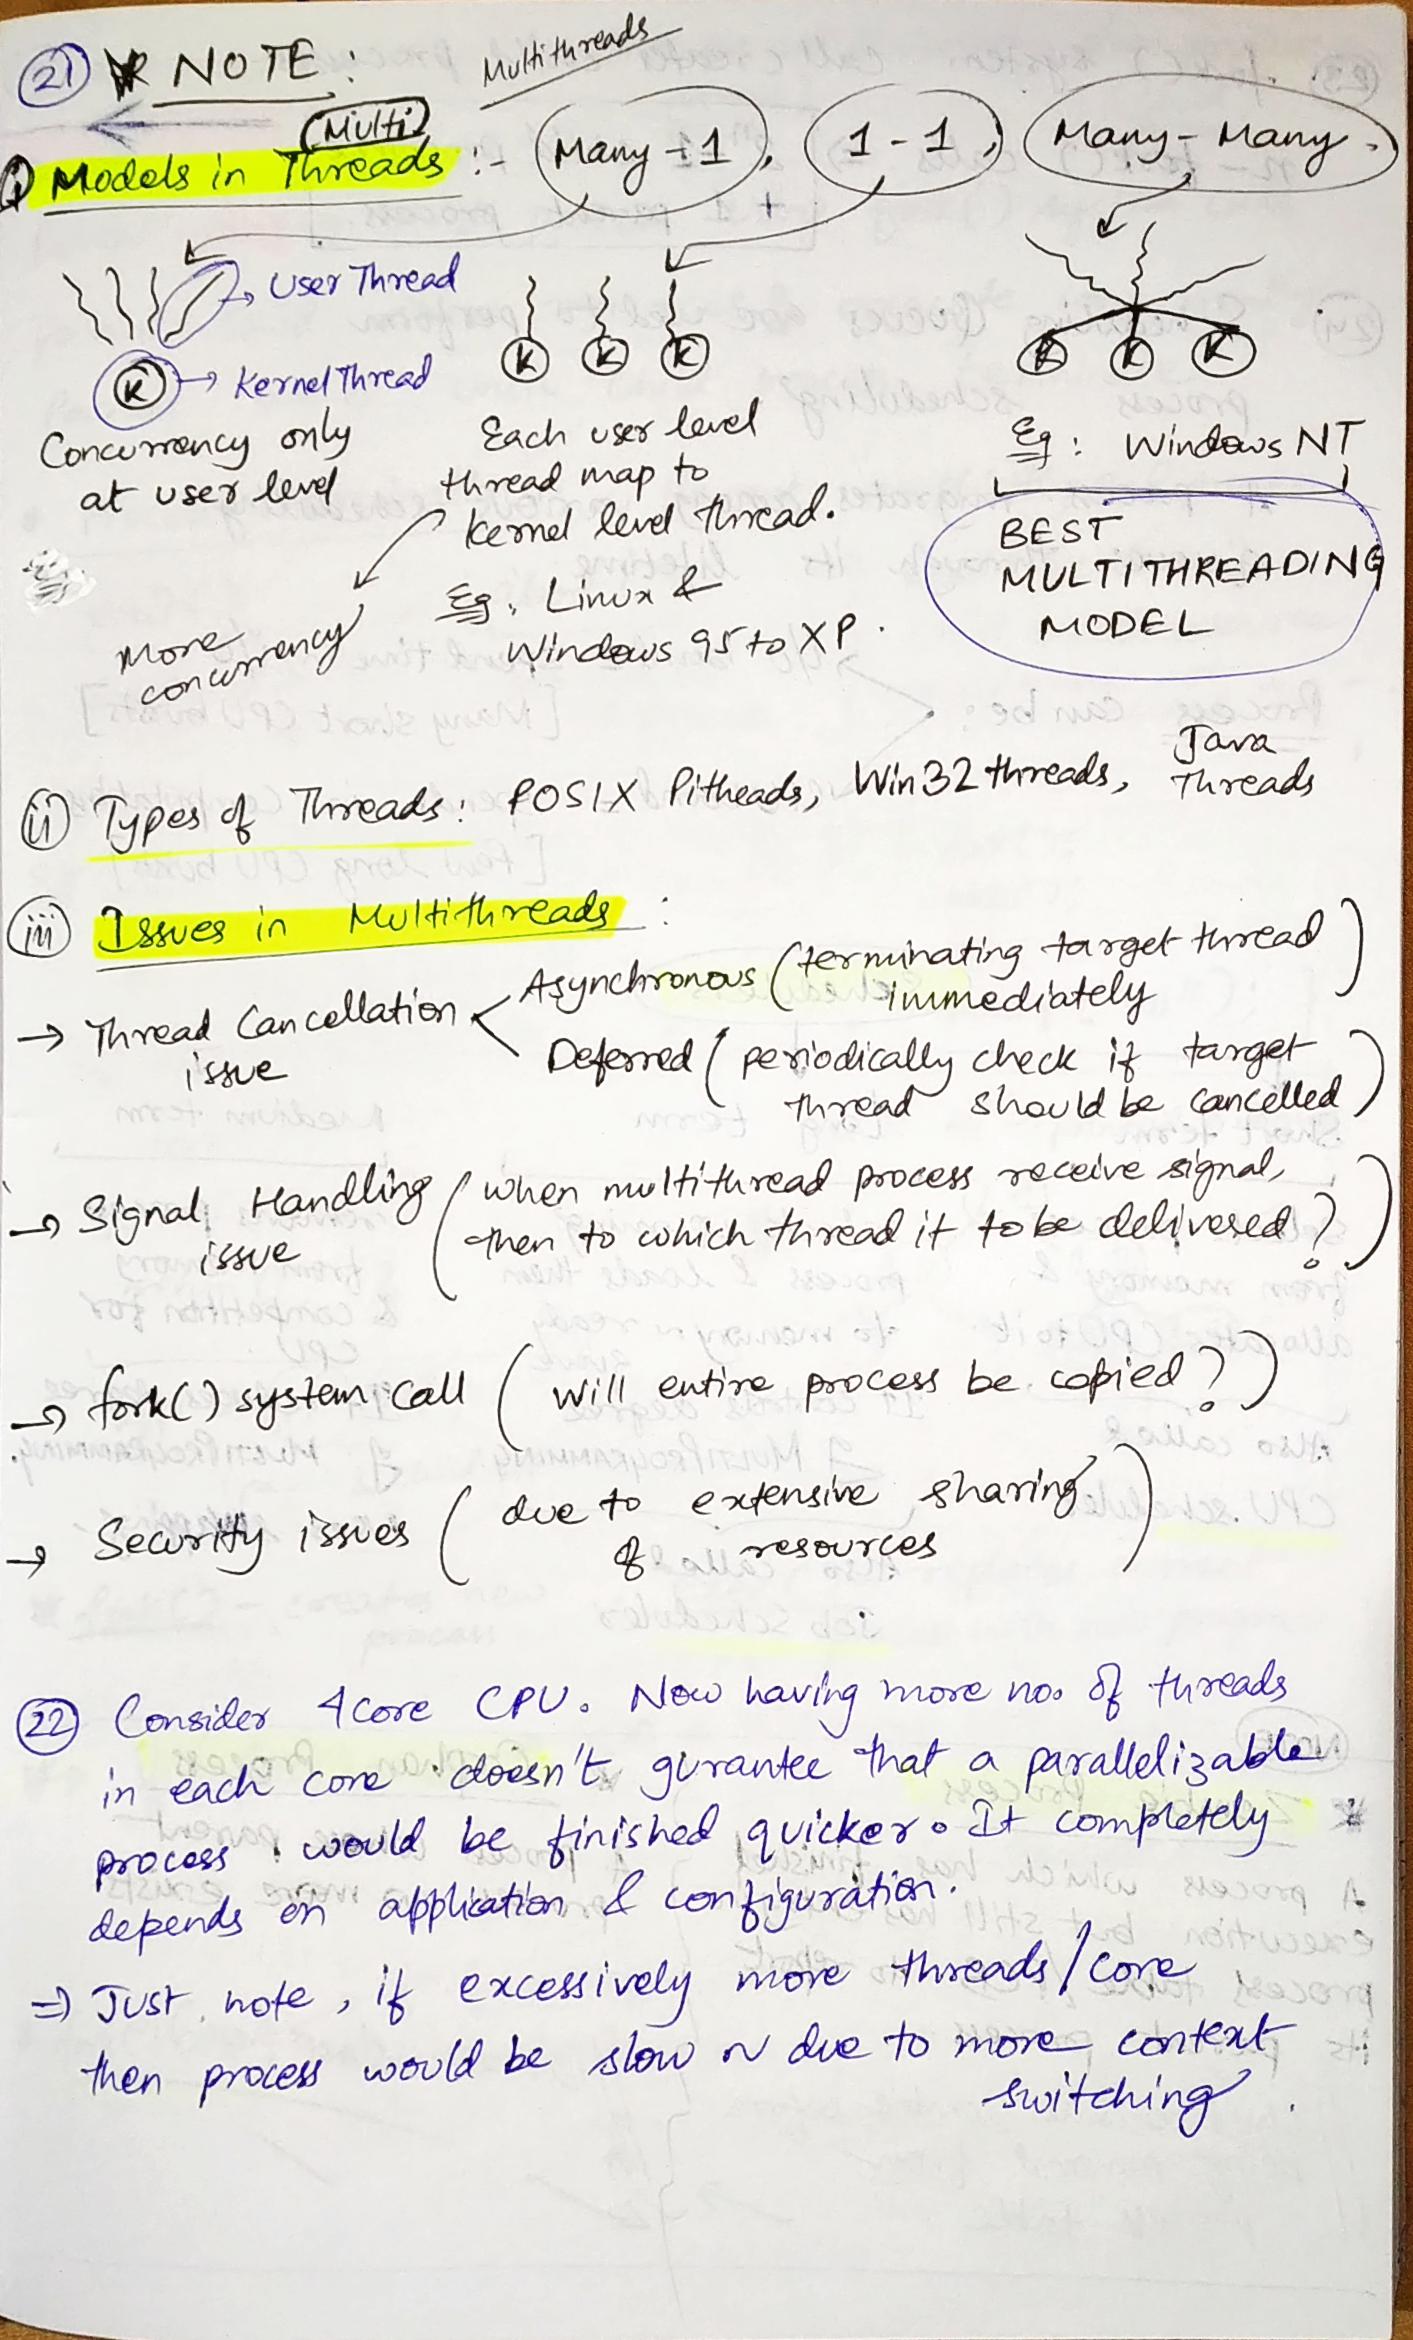 21 NOTE : Multithreads
(Multi)
i Models in Threads :- Many-1, 1-1, Many-Many.
User Thread
K K K K K K K
Kernel Thread
Concurrency only
at user level
Each user level
thread map to
kernel level thread.
More
concurrency
Eg, Linux &
Windows 95 to XP.
Eg : Windows NT
BEST
MULTITHREADING
MODEL
ii Types of Threads : POSIX Pitheads, Win32 threads, Java
Threads
iii Issues in Multithreads :
→ Thread Cancellation
issue
Asynchronous (terminating target thread
immediately)
Deferred (periodically check if target
thread should be cancelled)
→ Signal Handling
issue
(when multithread process receive signal,
then to which thread it to be delivered?)
→ fork() system call (will entire process be copied?)
→ Security issues (due to extensive sharing
of resources)
22 Consider 4 core CPU. Now having more no. of threads
in each core doesn't gurantee that a parallelizable
process would be finished quicker. It completely
depends on application & configuration.
⇒ Just note, if excessively more threads/core
then process would be slow due to more context
switching.